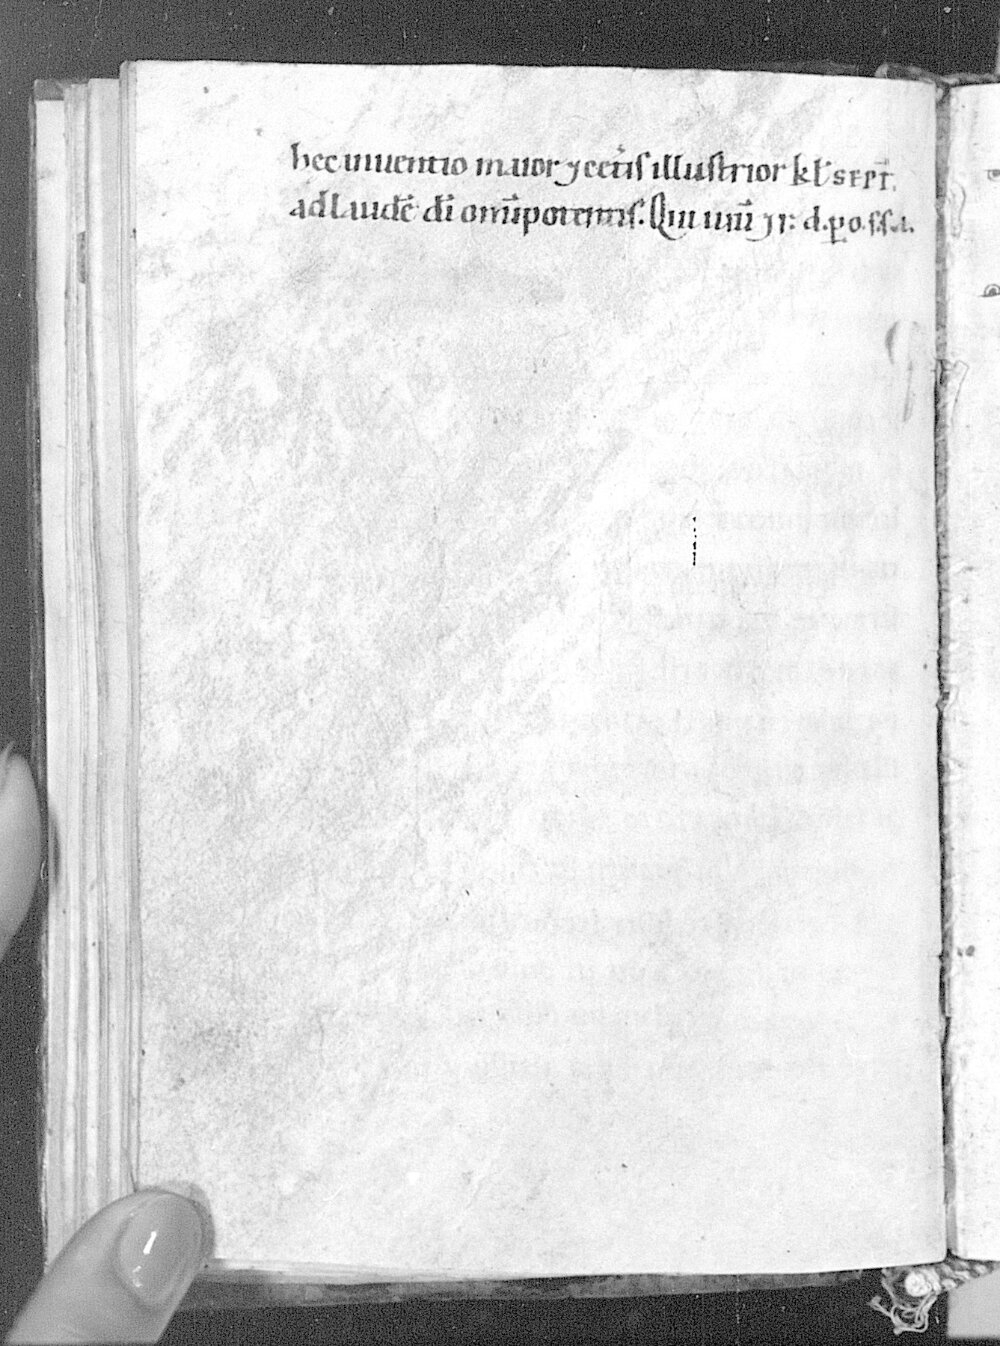 hec inuentio maior ⁊ cet̄is illustrior kl̄ sept̄.
ad laudē dī om̄ipotentis. Qui uiuit̄ ⁊ r: d. ꝑ o. s. s. a.